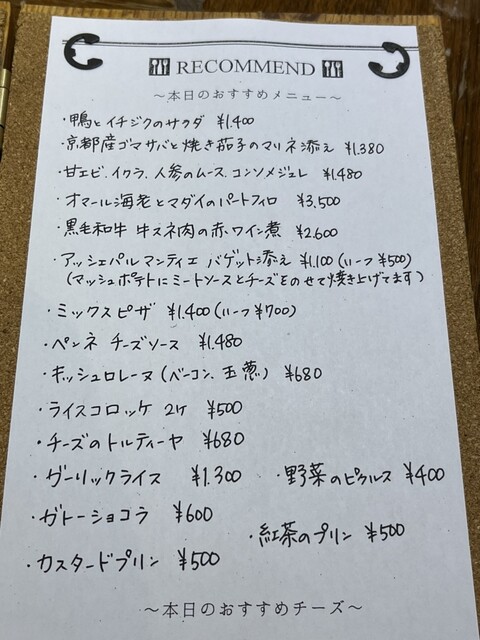 RECOMMEND
～本日のおすすめメニュー～
・鴨とイチジクのサラダ ¥1.400
・京都産ゴマサバと焼き茄子のマリネ添え ¥1.380
・甘エビ、イクラ、人参のムース、コンソメジュレ ¥1.480
・オマール海老とマダイのパートフィロ ¥3,500
・黒毛和牛 牛スネ肉の赤ワイン煮 ¥2.600
・アッシェパルマンティエ バゲット添え ¥1,100 (ハーフ ¥500)
(マッシュポテトにミートソースとチーズをのせて焼き上げてます)
・ミックスピザ ¥1.400 (ハーフ ¥700)
・ペンネ チーズソース ¥1.480
・キッシュロレーヌ (ベーコン、玉葱) ¥680
・ライスコロッケ 2ケ ¥500
・チーズのトルティーヤ ¥680
・ガーリックライス ¥1.300 ・野菜のピクルス ¥400
・ガトーショコラ ¥600
・紅茶のプリン ¥500
・カスタードプリン ¥500
～本日のおすすめチーズ～